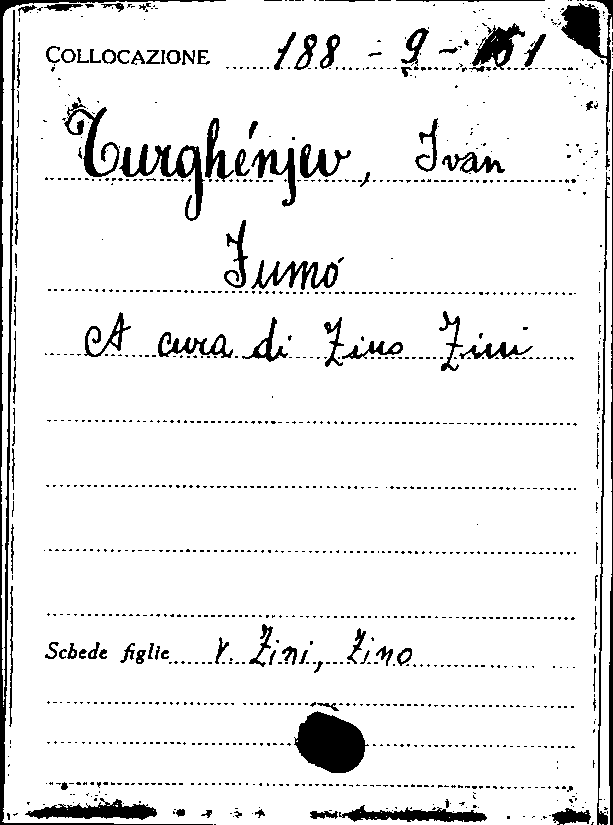 COLLOCAZIONE 188 - 9 - 151
Turghénjev, Ivan
Fumo
A cura di Zino Zini
Schede figlie v. Zini, Zino